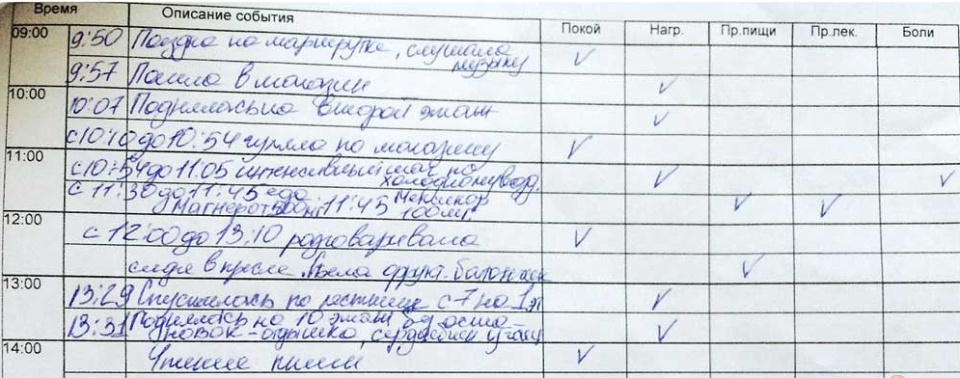 Время Описание события Покой Нагр. Пр.пищи Пр.лек. Боли
09:00
9:50 Поездка на маршрутке, слушала
музыку
9:57 Пошла в магазин
10:00
10:07 Поднялась на второй этаж
с 10:10 до 10:54 гуляла по магазину
11:00
с 10:54 до 11.05 интенсивный шаг по
холодному возд.
с 11:30 до 11:45 еда
Магнерот 11:45 Мексикор
100мг
12:00
с 12:00 до 13:10 разговаривала
сидя в кресле. Ела фрукт. батончик
13:00
13:29 Спустилась по лестнице с 7 на 1 эт
13:31 Поднялась на 10 этаж без оста-
новок - одышка, сердцебиен
14:00
Чтение книги